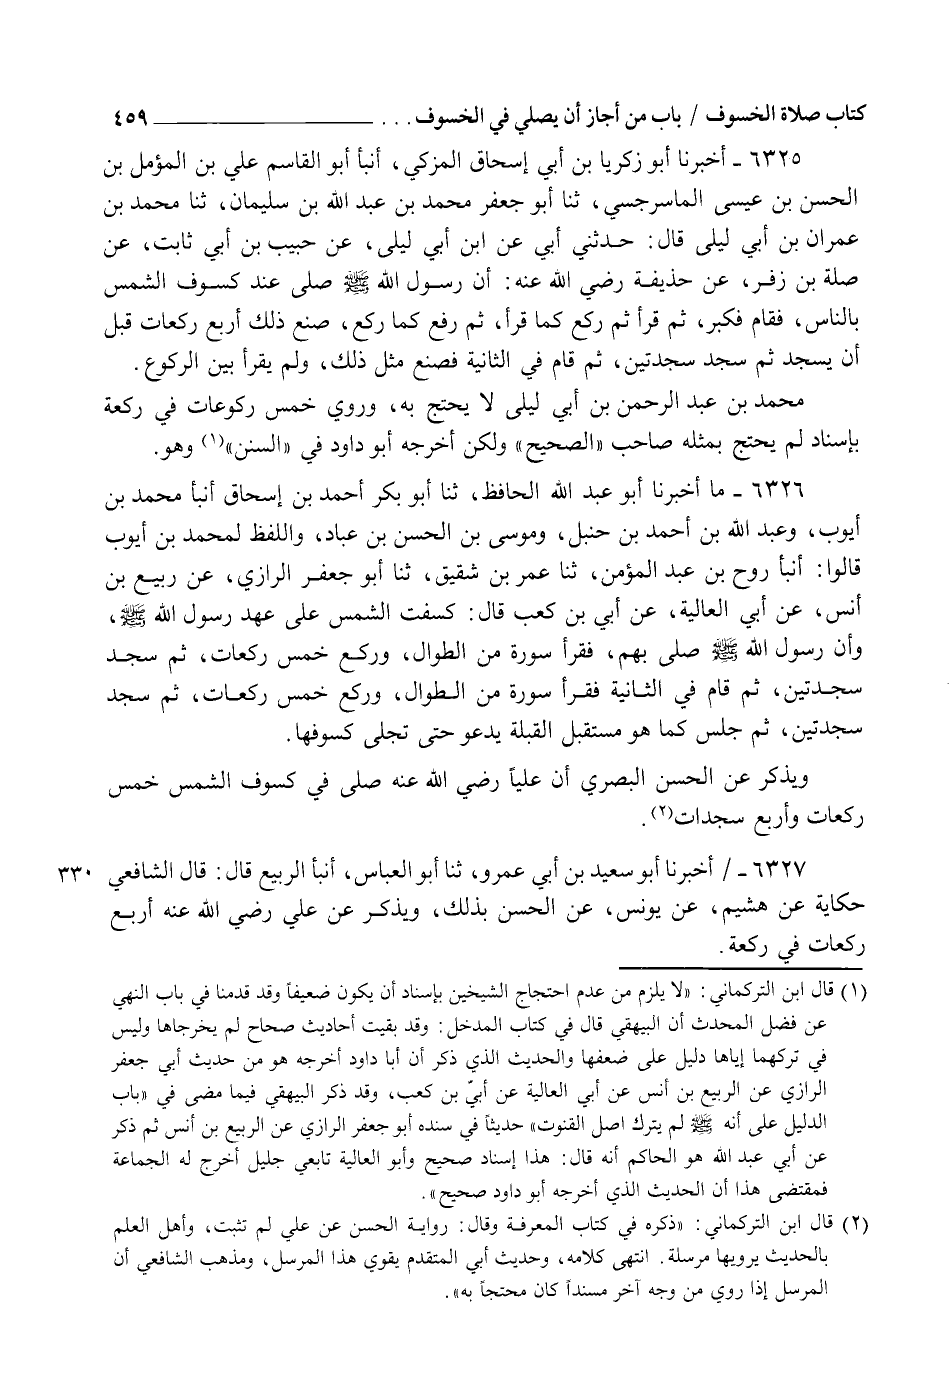 كتاب صلاة الخسوف / باب من أجاز أن يصلي في الخسوف . . . ٤٥٩
٦٣٢٥ ـ أخبرنا أبو زكريا بن أبي إسحاق المزكي، أنبأ أبو القاسم علي بن المؤمل بن
الحسن بن عيسى الماسرجسي، ثنا أبو جعفر محمد بن عبد الله بن سليمان، ثنا محمد بن
عمران بن أبي ليلى قال: حدثني أبي عن ابن أبي ليلى، عن حبيب بن أبي ثابت، عن
صلة بن زفر، عن حذيفة رضي الله عنه: أن رسول الله ﷺ صلى عند كسوف الشمس
بالناس، فقام فكبر، ثم قرأ ثم ركع كما قرأ، ثم رفع كما ركع، صنع ذلك أربع ركعات قبل
أن يسجد ثم سجد سجدتين، ثم قام في الثانية فصنع مثل ذلك، ولم يقرأ بين الركوع.
محمد بن عبد الرحمن بن أبي ليلى لا يحتج به، وروي خمس ركوعات في ركعة
بإسناد لم يحتج بمثله صاحب «الصحيح» ولكن أخرجه أبو داود في «السنن»(١) وهو.
٦٣٢٦ ـ ما أخبرنا أبو عبد الله الحافظ، ثنا أبو بكر أحمد بن إسحاق أنبأ محمد بن
أيوب، وعبد الله بن أحمد بن حنبل، وموسى بن الحسن بن عباد، واللفظ لمحمد بن أيوب
قالوا: أنبأ روح بن عبد المؤمن، ثنا عمر بن شقيق، ثنا أبو جعفر الرازي، عن ربيع بن
أنس، عن أبي العالية، عن أبي بن كعب قال: كسفت الشمس على عهد رسول الله ﷺ،
وأن رسول الله ﷺ صلى بهم، فقرأ سورة من الطوال، وركع خمس ركعات، ثم سجد
سجدتين، ثم قام في الثانية فقرأ سورة من الطوال، وركع خمس ركعات، ثم سجد
سجدتين، ثم جلس كما هو مستقبل القبلة يدعو حتى تجلى كسوفها.
ويذكر عن الحسن البصري أن علياً رضي الله عنه صلى في كسوف الشمس خمس
ركعات وأربع سجدات(٢).
٦٣٢٧ ـ / أخبرنا أبو سعيد بن أبي عمرو، ثنا أبو العباس، أنبأ الربيع قال: قال الشافعي ٣٣٠
حكاية عن هشيم، عن يونس، عن الحسن بذلك، ويذكر عن علي رضي الله عنه أربع
ركعات في ركعة.
(١) قال ابن التركماني: «لا يلزم من عدم احتجاج الشيخين بإسناد أن يكون ضعيفاً وقد قدمنا في باب النهي
عن فضل المحدث أن البيهقي قال في كتاب المدخل: وقد بقيت أحاديث صحاح لم يخرجاها وليس
في تركهما إياها دليل على ضعفها والحديث الذي ذكر أن أبا داود أخرجه هو من حديث أبي جعفر
الرازي عن الربيع بن أنس عن أبي العالية عن أبيّ بن كعب، وقد ذكر البيهقي فيما مضى في «باب
الدليل على أنه ﷺ لم يترك اصل القنوت» حديثاً في سنده أبو جعفر الرازي عن الربيع بن أنس ثم ذكر
عن أبي عبد الله هو الحاكم أنه قال: هذا إسناد صحيح وأبو العالية تابعي جليل أخرج له الجماعة
فمقتضى هذا أن الحديث الذي أخرجه أبو داود صحيح».
(٢) قال ابن التركماني: «ذكره في كتاب المعرفة وقال: رواية الحسن عن علي لم تثبت، وأهل العلم
بالحديث يرويها مرسلة. انتهى كلامه، وحديث أبي المتقدم يقوي هذا المرسل، ومذهب الشافعي أن
المرسل إذا روي من وجه آخر مسنداً كان محتجاً به».